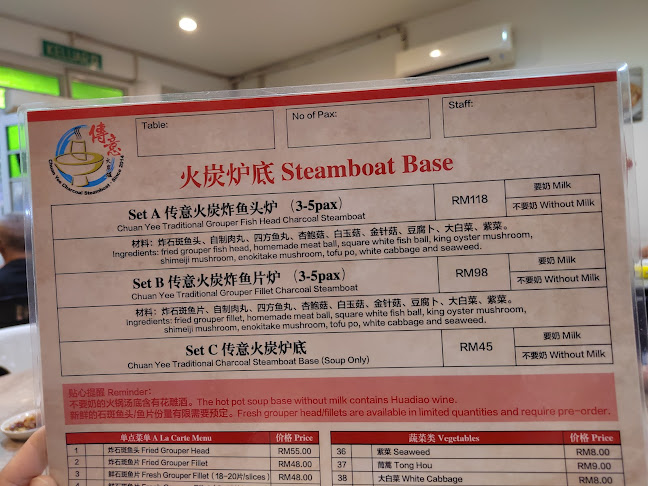 KELUAR
Table:
No of Pax:
Staff:
傳意
Chuan Yee Charcoal Steamboat - Since 2014
火炭炉底 Steamboat Base
Set A 传意火炭炸鱼头炉 （3-5pax）
Chuan Yee Traditional Grouper Fish Head Charcoal Steamboat
RM118
要奶 Milk
不要奶 Without Milk
材料：炸石斑鱼头、自制肉丸、四方鱼丸、杏鲍菇、白玉菇、金针菇、豆腐卜、大白菜、紫菜。
Ingredients: fried grouper fish head, homemade meat ball, square white fish ball, king oyster mushroom,
shimeiji mushroom, enokitake mushroom, tofu po, white cabbage and seaweed.
Set B 传意火炭炸鱼片炉 （3-5pax）
Chuan Yee Traditional Grouper Fillet Charcoal Steamboat
RM98
要奶 Milk
不要奶 Without Milk
材料：炸石斑鱼片、自制肉丸、四方鱼丸、杏鲍菇、白玉菇、金针菇、豆腐卜、大白菜、紫菜。
Ingredients: fried grouper fillet, homemade meat ball, square white fish ball, king oyster mushroom,
shimeiji mushroom, enokitake mushroom, tofu po, white cabbage and seaweed.
Set C 传意火炭炉底
Chuan Yee Traditional Charcoal Steamboat Base (Soup Only)
RM45
要奶 Milk
不要奶 Without Milk
贴心提醒 Reminder:
不要奶的火锅汤底含有花雕酒。The hot pot soup base without milk contains Huadiao wine.
新鲜的石斑鱼头/鱼片份量有限需要预定。Fresh grouper head/fillets are available in limited quantities and require pre-order.
单点菜单 A La Carte Menu 价格 Price
1 炸石斑鱼头 Fried Grouper Head RM55.00
2 炸石斑鱼片 Fried Grouper Fillet RM48.00
3 鲜石斑鱼片 Fresh Grouper Fillet (18-20片/slices) RM48.00
蔬菜类 Vegetables 价格 Price
36 紫菜 Seaweed RM8.00
37 茼蒿 Tong Hou RM9.00
38 大白菜 White Cabbage RM8.00